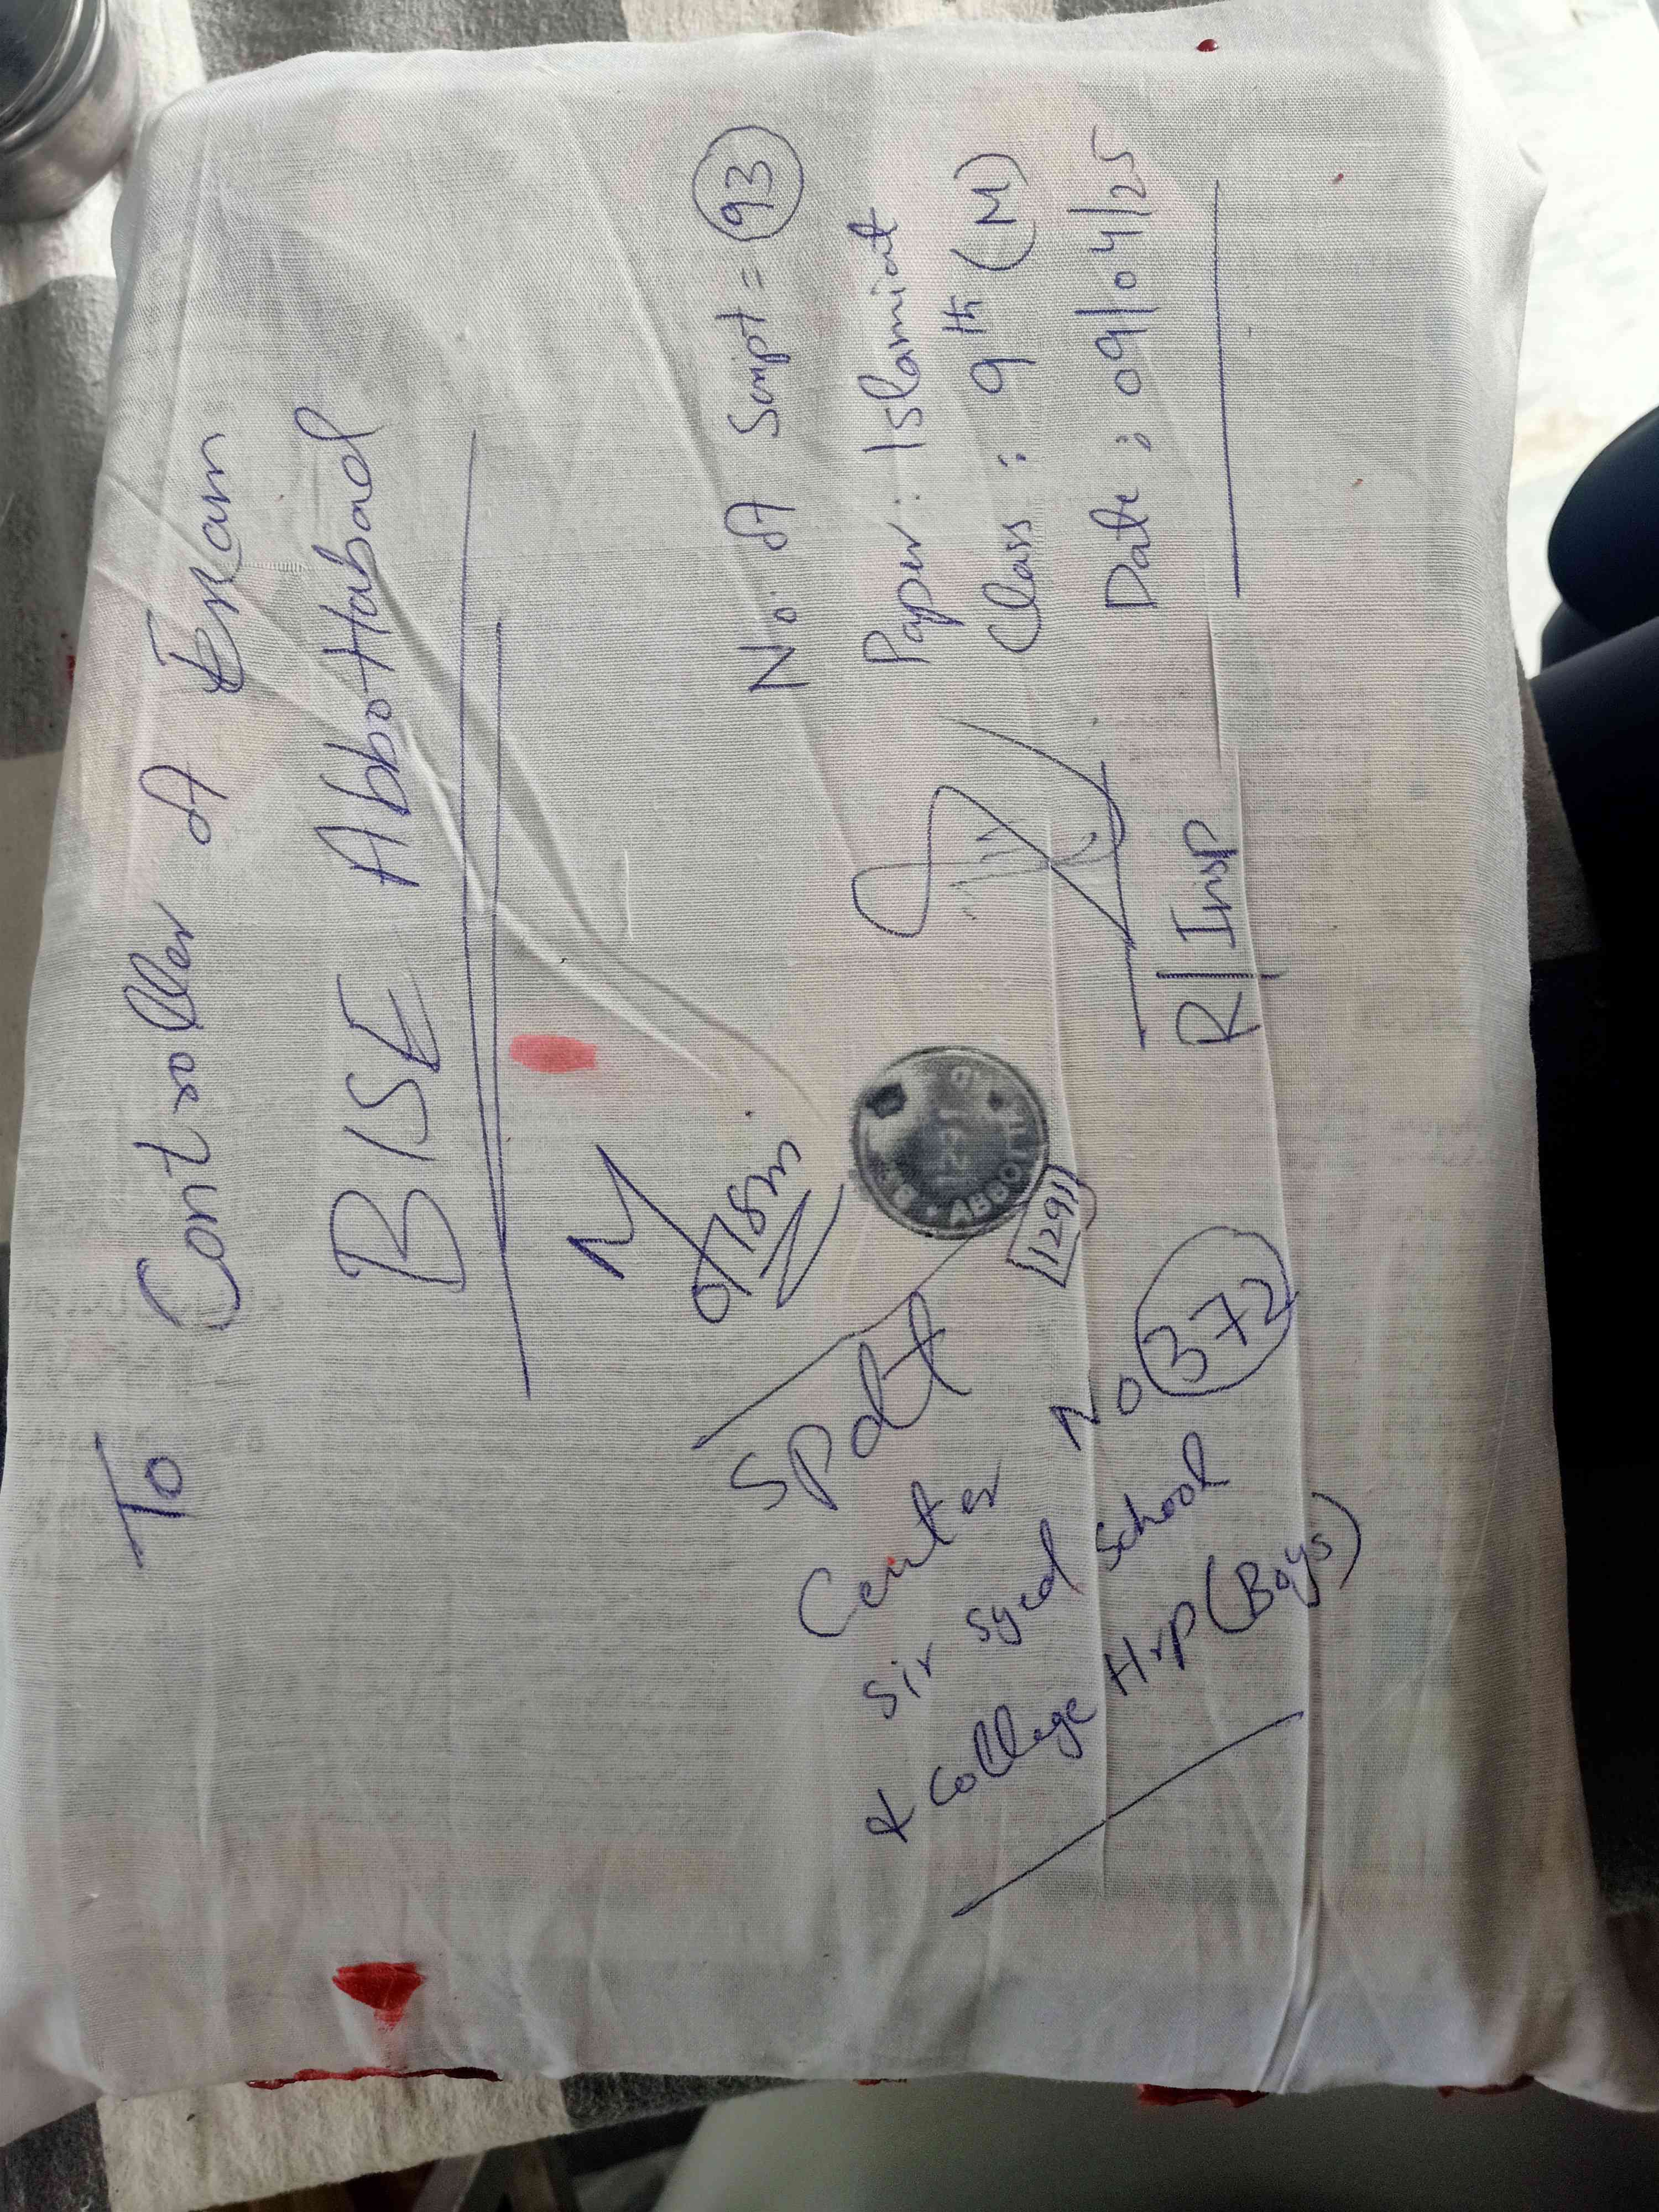 To Controller of Exam:
BISE Abbottabad
No. of Script = 93
Paper: Islamiat
Class: 9th (M)
Date: 09/04/25
R/Insp
ABBOTTABAD
1291
Spdt
Center No 372
Sir Syed School
& College Hrp (Boys)